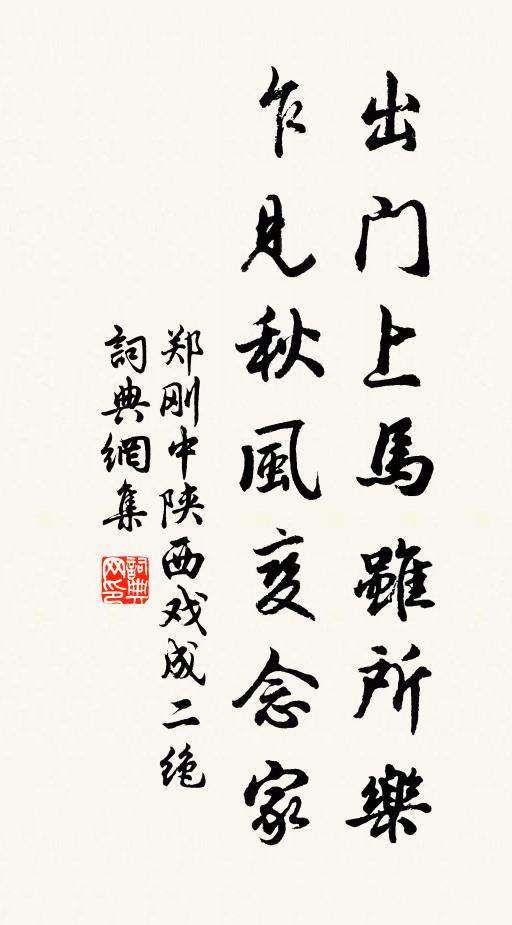 出门上馬雖所樂
乍見秋風变念家
郑刚中陕西戏成二绝
詞典網集
詞典网印